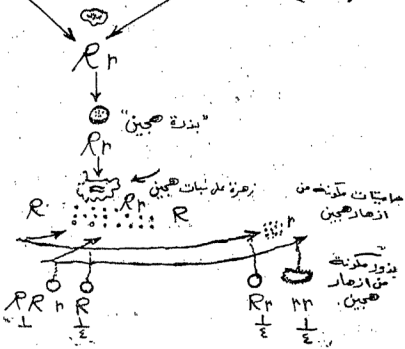 Rr
"بذرة هجين"
Rr
زهرة على نبات هجين
Rr
R R r
جاميتات مكونة من
ازهار هجين
بذور مكونة
من ازهار
هجين
RR r R Rr rr
١/٤ ١/٤ ١/٤